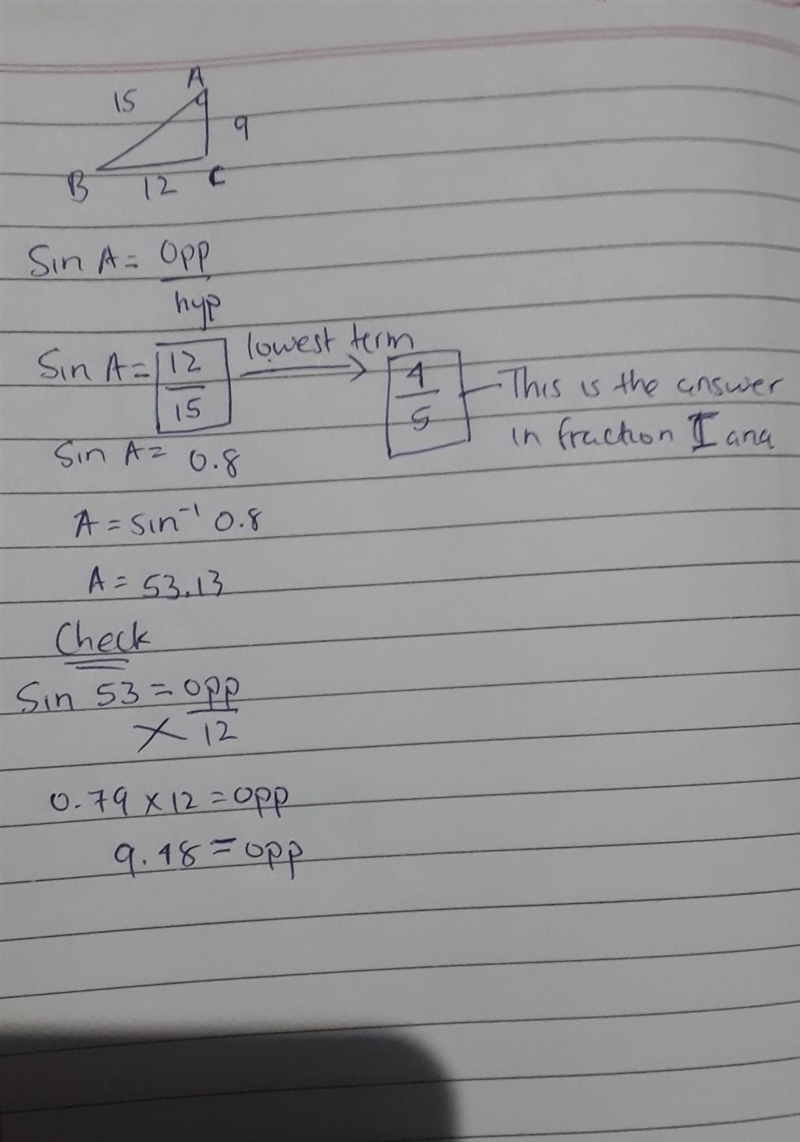 A
15
9
B
12
C
Sin A = Opp
hyp
Sin A = 12 lowest term 4
15 5
This is the answer
in fraction I ana
Sin A = 0.8
A = sin⁻¹ 0.8
A = 53.13
Check
Sin 53 = opp
12
0.79 × 12 = opp
9.48 = opp